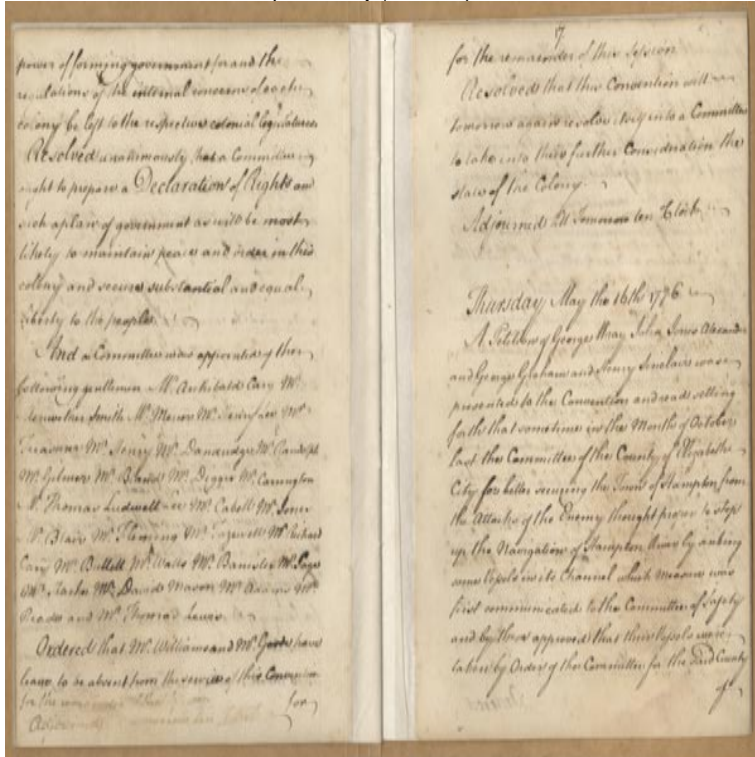 power of forming government for and the
regulations of the internal concerns of each
colony be left to the respective colonial legislatures.
Resolved unanimously that a Committee
ought to prepare a Declaration of Rights and
such a plan of government as will be most
likely to maintain peace and order in this
colony and secure substantial and equal
liberty to the people.
And a Committee was appointed of the
following gentlemen Mr. Archibald Cary Mr.
Meriwether Smith Mr. Mercer Mr. Henry Lee Mr.
Treasurer Mr. Henry Mr. Dandridge Mr. Randolph
Mr. Gilmer Mr. Bland Mr. Digges Mr. Carrington
Mr. Thomas Ludwell Lee Mr. Cabell Mr. Jones
Mr. Blair Mr. Fleming Mr. Tazewell Mr. Richard
Cary Mr. Bullitt Mr. Watts Mr. Banister Mr. Page
Mr. Starke Mr. David Mason Mr. Adams Mr.
Read and Mr. Thomas Lewis.
Ordered that Mr. Williams and Mr. have
leave to be absent from the service of this Convention
for the
for
7
for the remainder of this Session
Resolved that this Convention will
tomorrow again resolve itself into a Committee
to take into their further Consideration the
state of the Colony.
Adjourned till Tomorrow ten Clock
Thursday May the 16th 1776
A Petition of George Wray John Jones Alexander
and George Graham and Henry Sinclair was
presented to the Convention and read setting
forth that sometime in the Month of October
last the Committee of the County of Elizabeth
City for better securing the Town of Hampton from
the Attacks of the Enemy thought proper to stop
up the Navigation of Hampton River by sinking
some Vessels in its Channel which Measure was
first communicated to the Committee of Safety
and by them approved that their Vessels were
taken by Order of the Committee for the said County
of